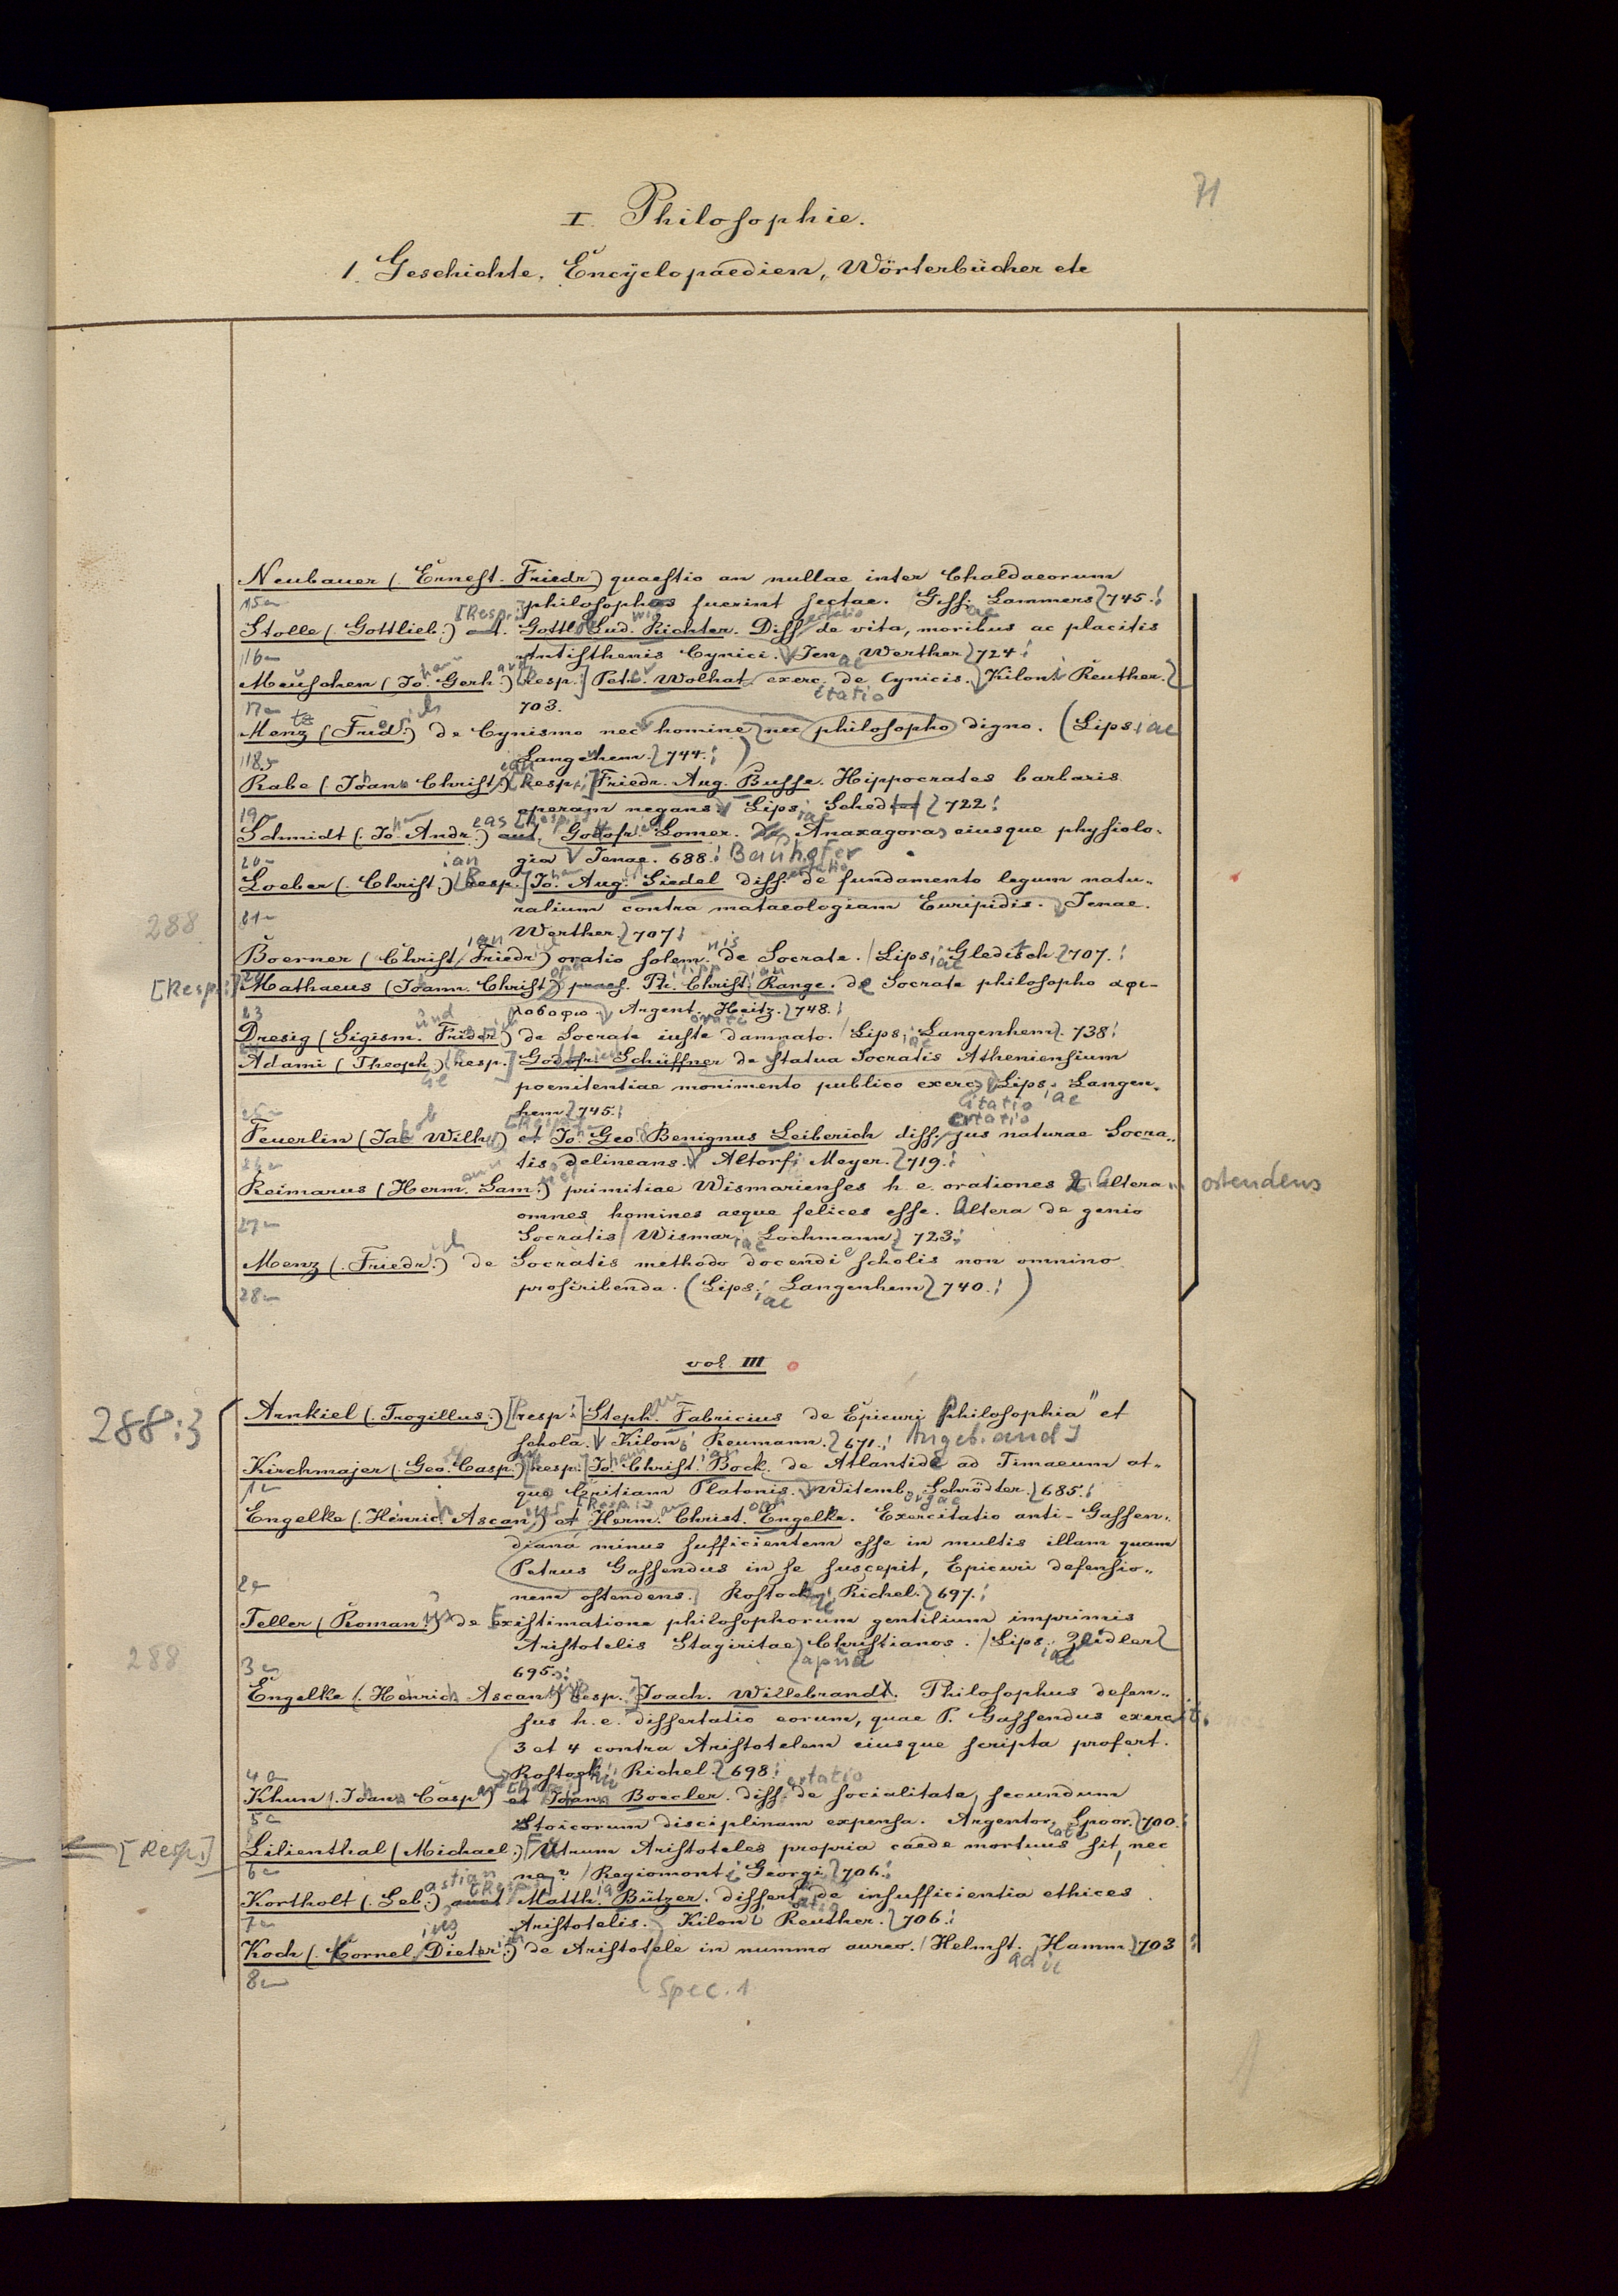 71
I. Philosophie.
1. Geschichte, Encyclopaedien, Wörterbücher etc
Neubauer (. Ernest. Friedr) quaestio an nullae inter Chaldaeorum
philosophos fuerint sectae. Giss. Lammers 745.
Stolle (. Gottlieb.) et. Gottl. Lud. Richter. Diss de vita, moribus ac placitis
Antisthenis Cynici. Jen. Werther 724
Meuschen (Jo. Gerh.) [Resp.] Petr. Wolhat exerc. de Cynicis. Kiloni Reuther.
703.
Menz (Frid.) de Cynismo nec homine nec philosopho digno. (Lipsiae
Langenhem. 744.)
Rabe (. Joan. Christ.) [Resp.] Friedr. Aug. Busse. Hippocrates barbaris
operam negans. Lips. Sched 722
Schmidt (. Jo. Andr.) Godofr. Lomer. Anaxagoras eiusque physiolo-
gia Jenae. 688. Bauhofer
Loeber (. Christ.) [Resp.] Jo. Aug. Siedel diss. de fundamento legum natu-
ralium contra mataeologiam Euripidis. Jenae.
288
Werther. 707
Boerner (. Christ. Friedr) oratio solemnis de Socrate. Lipsiae Gleditsch 707.
[Resp.:] Mathaeus (Joann. Christ) praes. Ph. Christ. Range. de Socrate philosopho αφι-
λοσοφω. Argent. Heitz. 748.
Dresig (Sigism. Frider) de Socrate iuste damnato. Lipsiae Langenhem. 738
Adami (Theoph) [resp.] Godofr. Schüffner de statua Socratis Atheniensium
poenitentiae monimento publico exerc Lips. Langen-
hem 745.
Feuerlin (Jac Wilh) et Jo. Geo. Benignus Leiberich diss. jus naturae Socra-
tis delineans. Altorfi Meyer. 719.
Reimarus (Herm. Sam.) primitiae Wismarienses h. e. orationes 2 Altera ostendens
omnes homines aeque felices esse. Altera de genio
Socratis Wismariae Lochmann 723.
Menz (. Friedr.) de Socratis methodo docendi scholis non omnino
proscribenda. (Lipsiae Langenhem 740.)
28
vol. III
288:3
Arnkiel (. Trogillus.) [Resp.] Steph. Fabricius de Epicuri Philosophia et
schola. Kiloni Reumann. 671. Angeb. and
Kirchmajer (. Geo. Casp.) [resp.] Jo. Christ. Bock. de Atlantide ad Timaeum at-
que Critiam Platonis. Witemb. Schrödter. 685.
Engelke (. Hinric. Ascan.) et Herm. Christ. Engelke. Exercitatio anti-Gassen-
diana minus sufficientem esse in multis illam quam
Petrus Gassendus in se suscepit, Epicuri defensio-
nem ostendens. Rostoch. Richel. 697.
Teller (Roman.) de Existimatione philosophorum gentilium imprimis
Aristotelis Stagiritae apud Christianos. Lipsiae Zeidler
288
695.
Engelke (. Henrich Ascan) [Resp.] Joach. Willebrandt. Philosophus defen-
sus h. e. dissertatio eorum, quae P. Gassendus exerc
3 et 4 contra Aristotelem eiusque scripta profert.
Rostochii Richel. 698
Khun (. Joan. Casp.) et Joann. Boecler. diss. de socialitate, secundum
Stoicorum disciplinam expensa. Argentor. Spoor. 700.
[Resp.] Lilienthal (Michael.) Utrum Aristoteles propria caede mortuus sit, nec
ne? Regiomonti Georgi 706.
Kortholt (. Seb.) Matth. Bützer. dissert. de insufficientia ethices
Aristotelis. Kiloni Reuther. 706.
Koch (. Cornel. Dieter.) de Aristotele in nummo aureo. Helmst. Hamm 703
8
Spec. 1